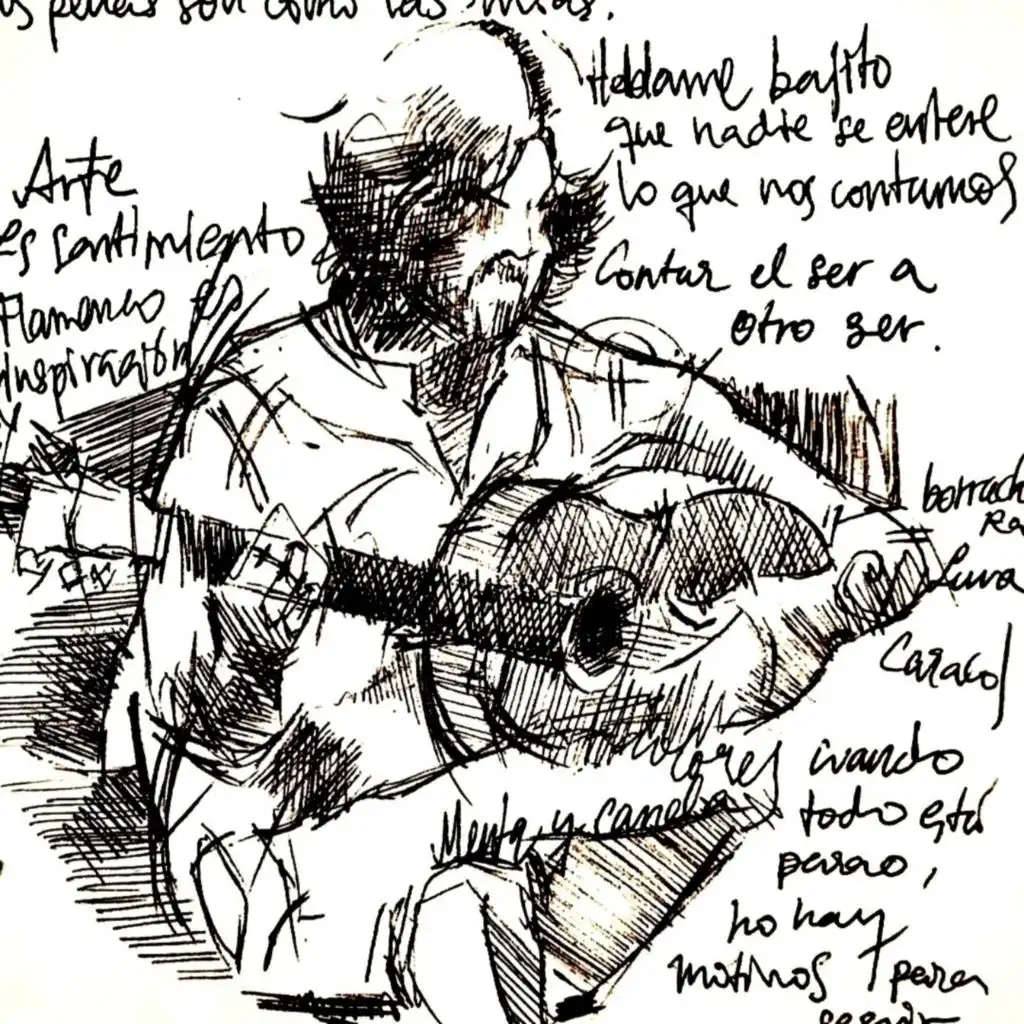 penas son como las mias.
Hablame bajito
que nadie se entere
lo que nos contamos
Contar el ser a
otro ser.
Arte
es sentimiento
Flamenco es
inspiración
y
borrach
Ra
Luna
Caracol
Menta y canela
cuando
todo está
parao,
no hay
motivos para